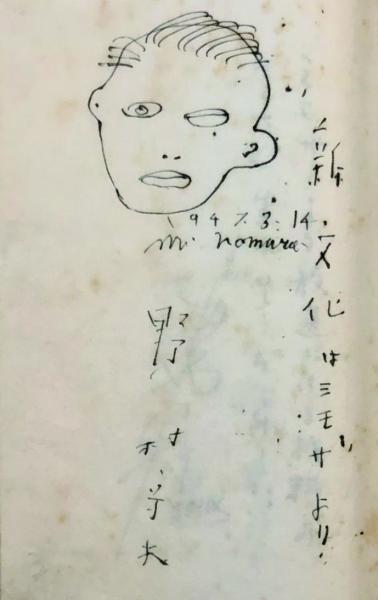 新文化はミモザより
1947.3.14.
M. Nomura
野村守夫